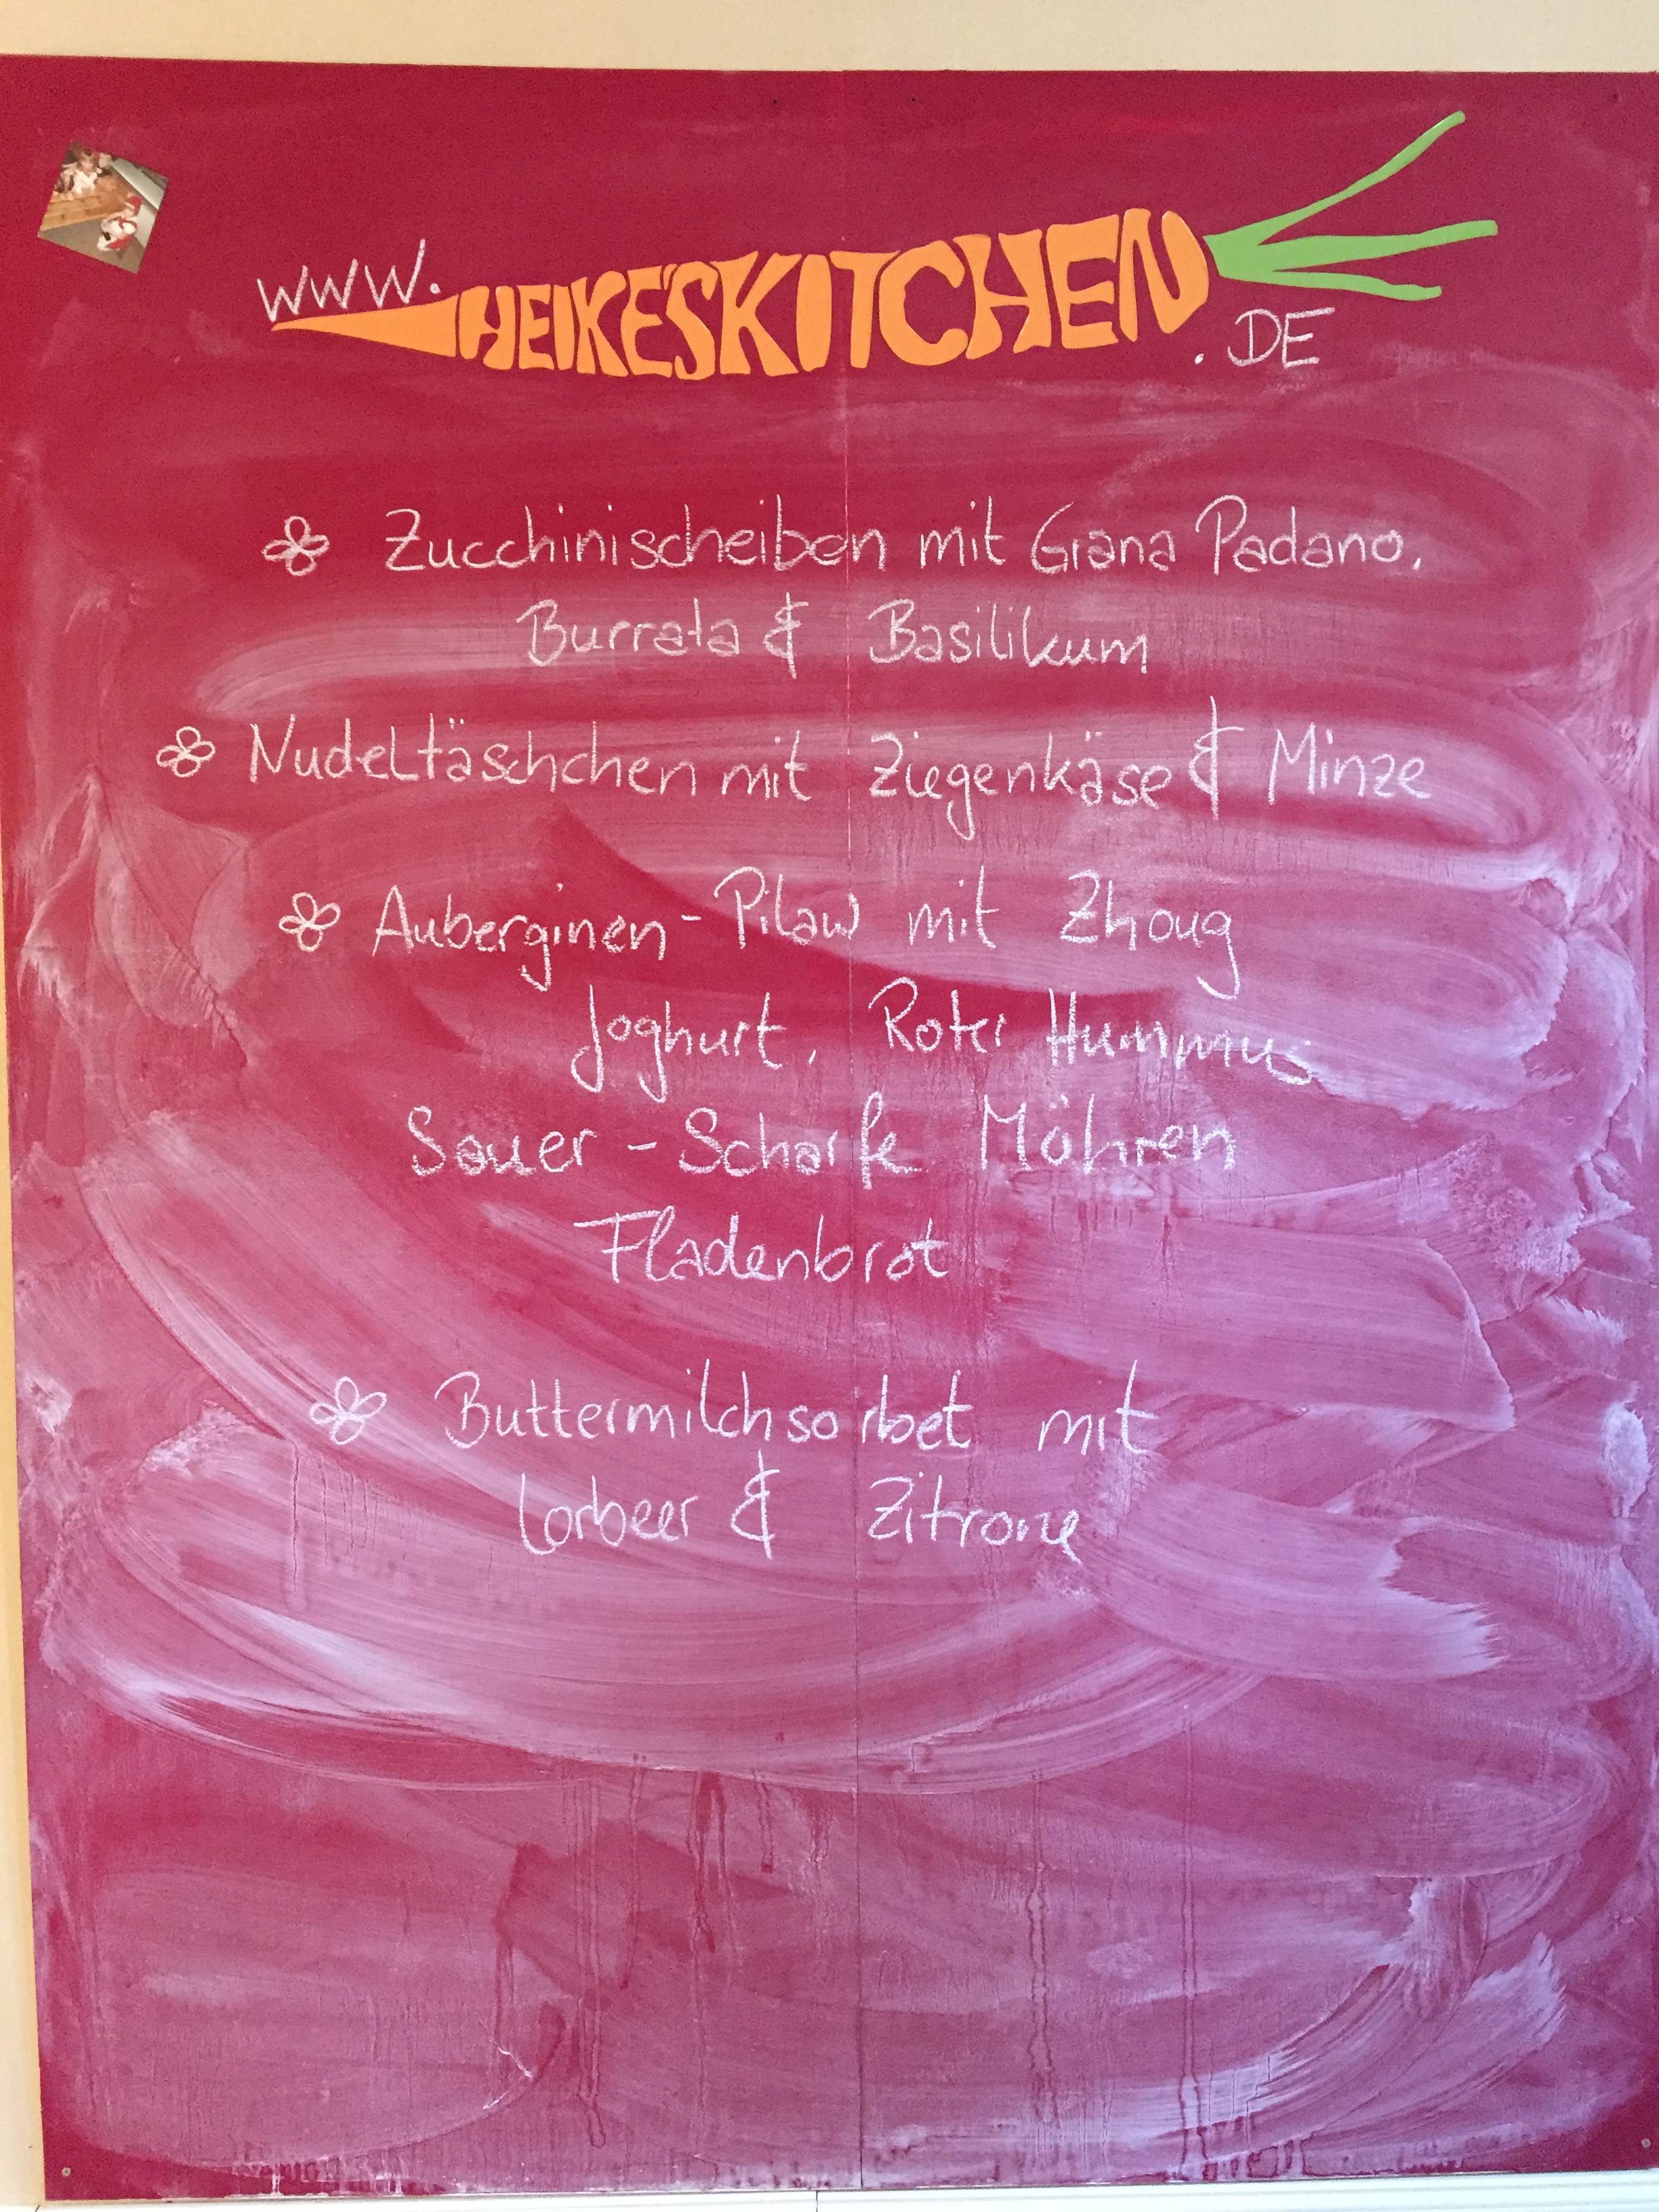 www.HEIKE'SKITCHEN.DE
Zucchinischeiben mit Grana Padano,
Burrata & Basilikum
Nudeltäschchen mit Ziegenkäse & Minze
Auberginen-Pilaw mit Zhoug
Joghurt, Roter Hummus
Sauer-Scharfe Möhren
Fladenbrot
Buttermilchsorbet mit
Lorbeer & Zitrone